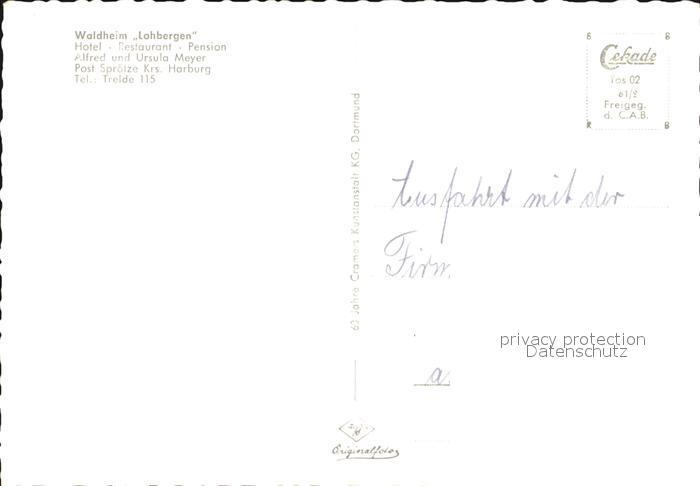 Waldheim „Lohbergen"
Hotel · Restaurant · Pension
Alfred und Ursula Meyer
Post Sprötze Krs. Harburg
Tel.: Trelde 115
Cekade
Tos 02
61/2
Freigeg.
d. C.A.B.
Ausfahrt mit der
Firm.
a.
privacy protection
Datenschutz
Jahre Cramers Kunstanstalt KG, Dortmund
Originalfoto